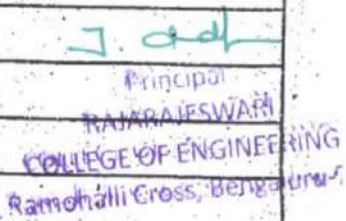 Principal
RAJARAJESWARI
COLLEGE OF ENGINEERING
Ramohalli Cross, Bengaluru-